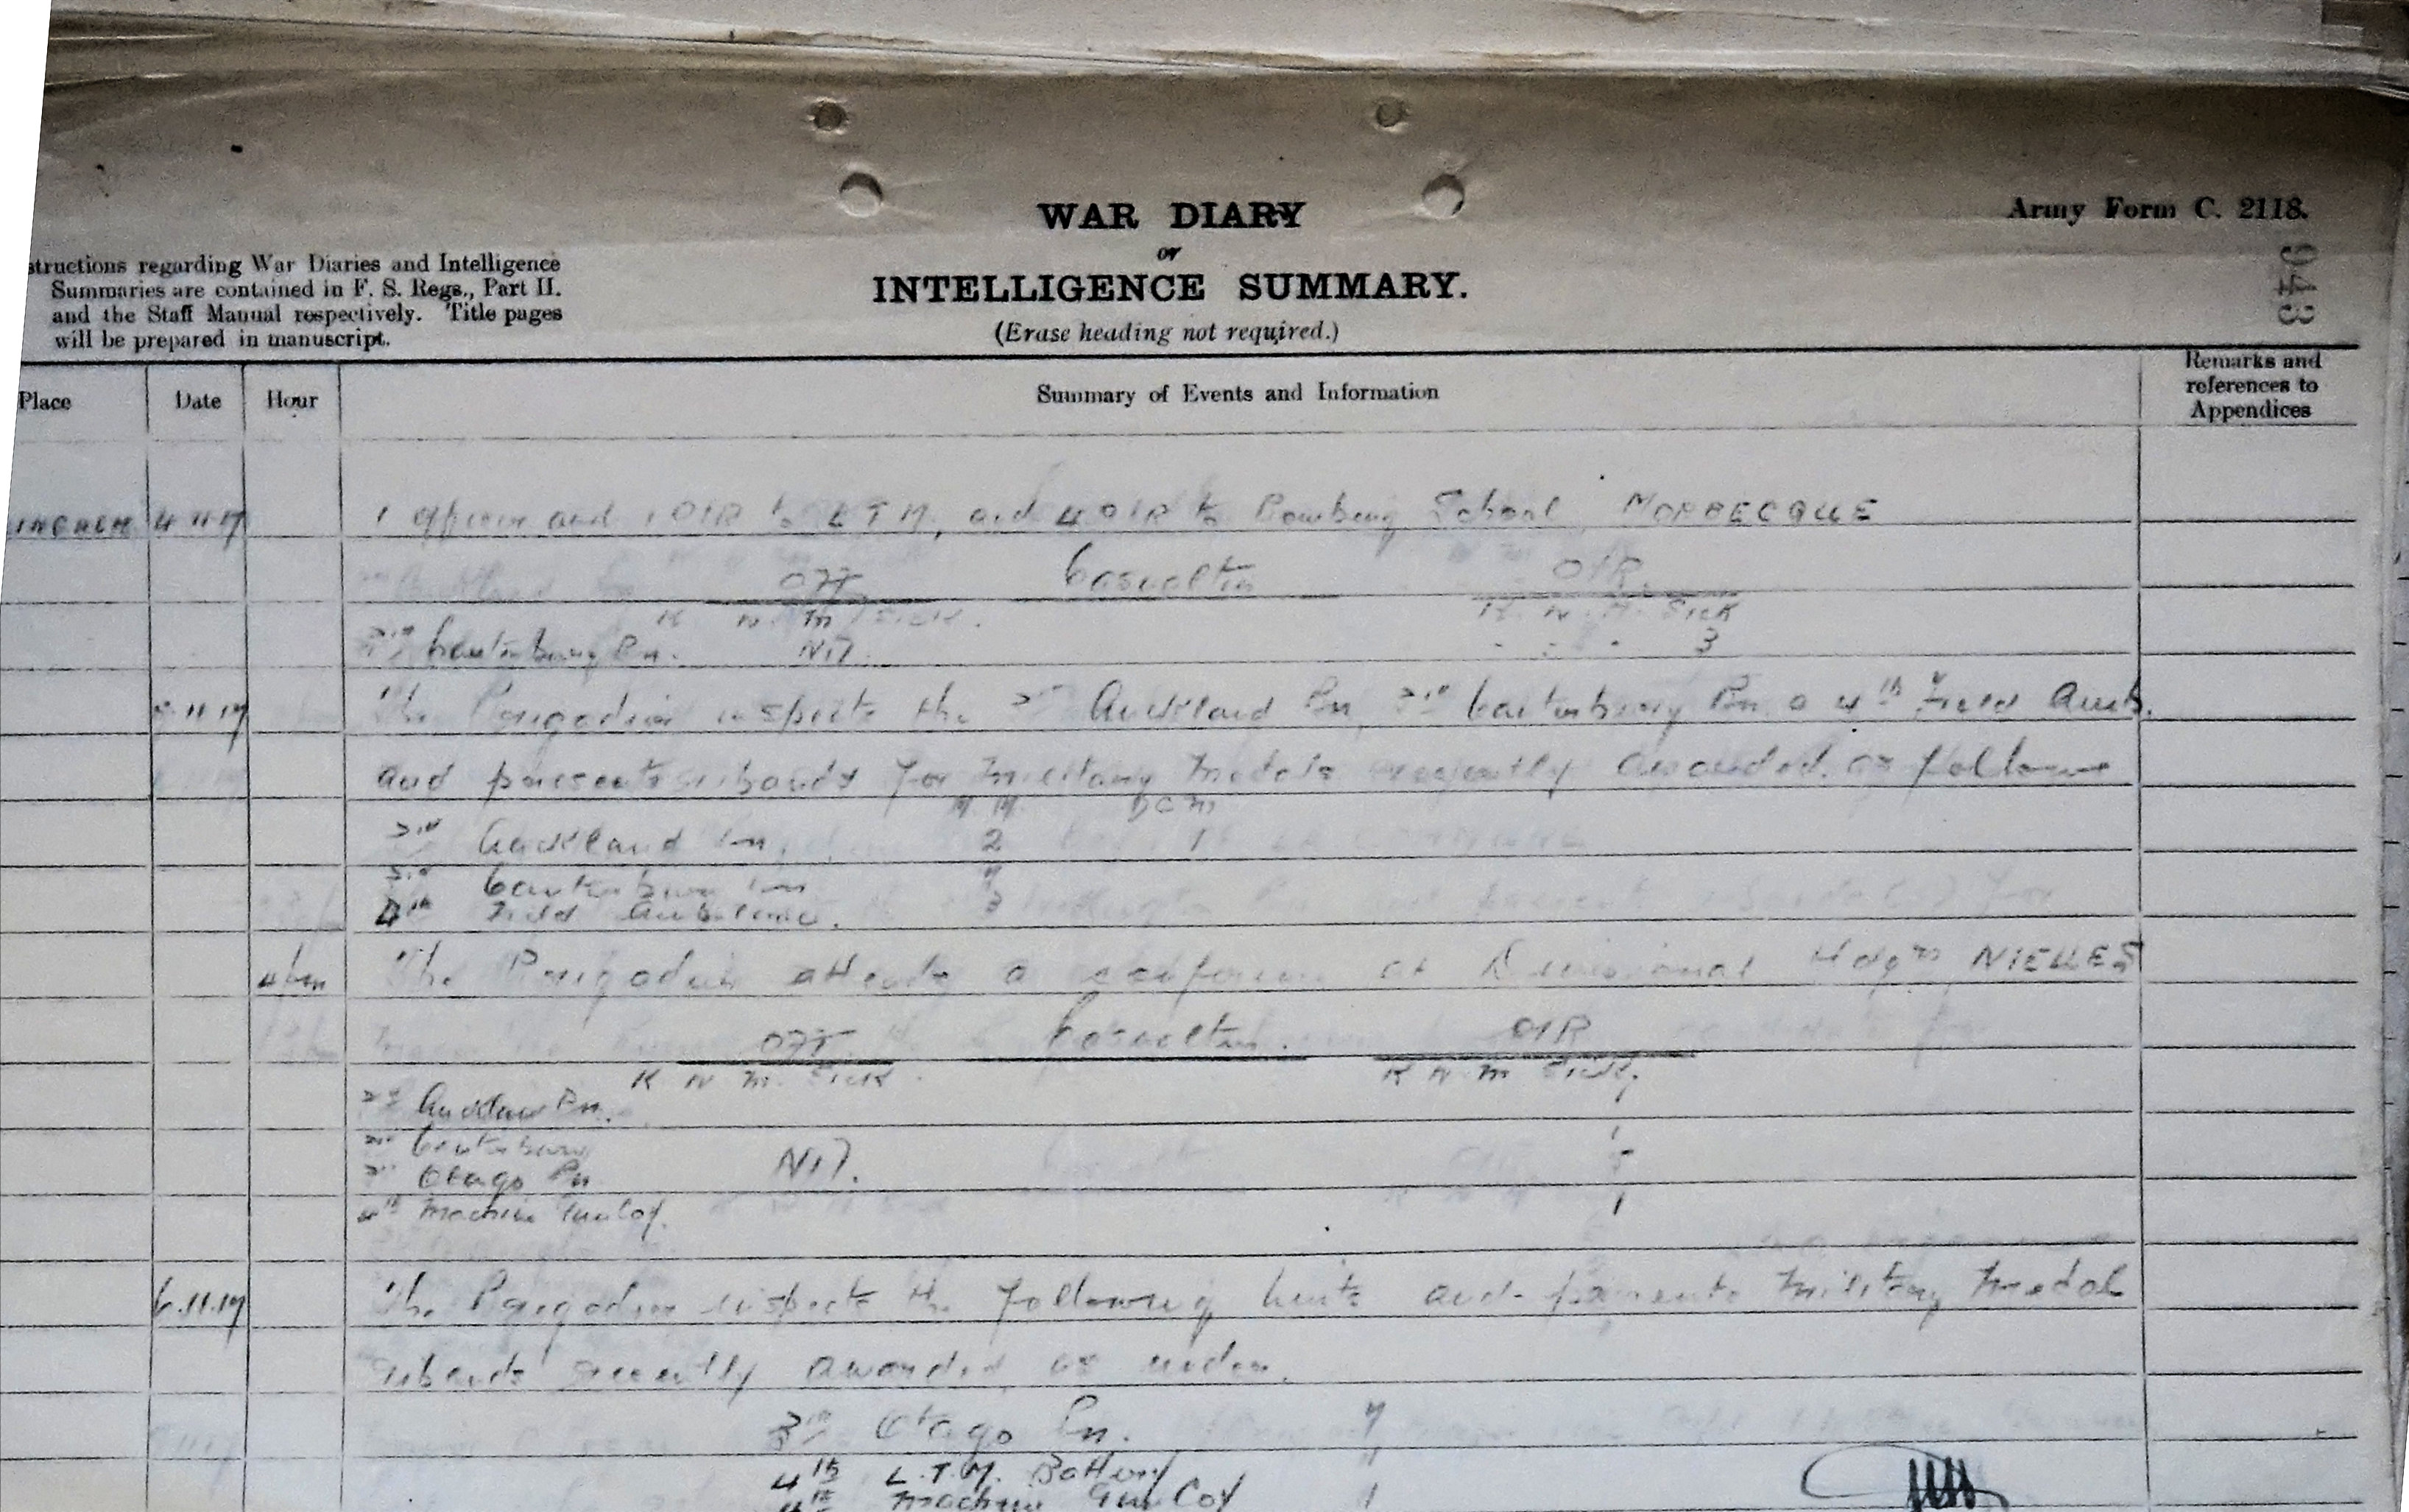 WAR DIARY
or
INTELLIGENCE SUMMARY.
(Erase heading not required.)
Army Form C. 2118.
structions regarding War Diaries and Intelligence
Summaries are contained in F. S. Regs., Part II.
and the Staff Manual respectively. Title pages
will be prepared in manuscript.
Place Date Hour Summary of Events and Information Remarks and references to Appendices
4.11.17 1 officer and 1 O/R to L T M, and 4 O/R to Bombing School MORBECQUE
Off Casualties O/R
K W M Sick. K W M Sick
3rd Canterbury Bn. Nil. - - - 3
5.11.17 The Brigadier inspects the 3rd Auckland Bn, 3rd Canterbury Bn & 4th Field Amb.
and presents ribands for Military Medals recently awarded as follows
M.M. DCM
3rd Auckland Bn 2 1
3rd Canterbury Bn 7
4th Field Ambulance. 3
4 pm The Brigadier attends a conference at Divisional Hdqrs NIELLES
Off Casualties. O/R
K W M. Sick. K W M Sick.
3rd Auckland Bn. 1
3rd Canterbury 1
3rd Otago Bn Nil. 5
4th Machine Gun Coy. 1
6.11.17 The Brigadier inspects the following units and presents Military Medal
ribands recently awarded as under.
3rd Otago Bn. 7
4th L.T.M. Battery
4th Machine Gun Coy 1